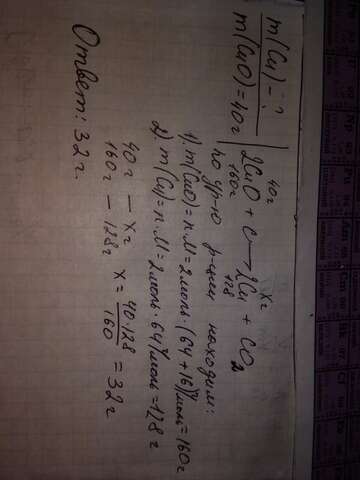 m(Cu) - ?
m(CuO) = 40г
40г xг
2CuO + C → 2Cu + CO₂
160г 128
по ур-ю р-ции находим:
1) m(CuO) = n·M = 2моль·(64+16)г/моль = 160г
2) m(Cu) = n·M = 2моль·64г/моль = 128г
40г — xг
160г — 128г x = 40·128/160 = 32г
Ответ: 32г.